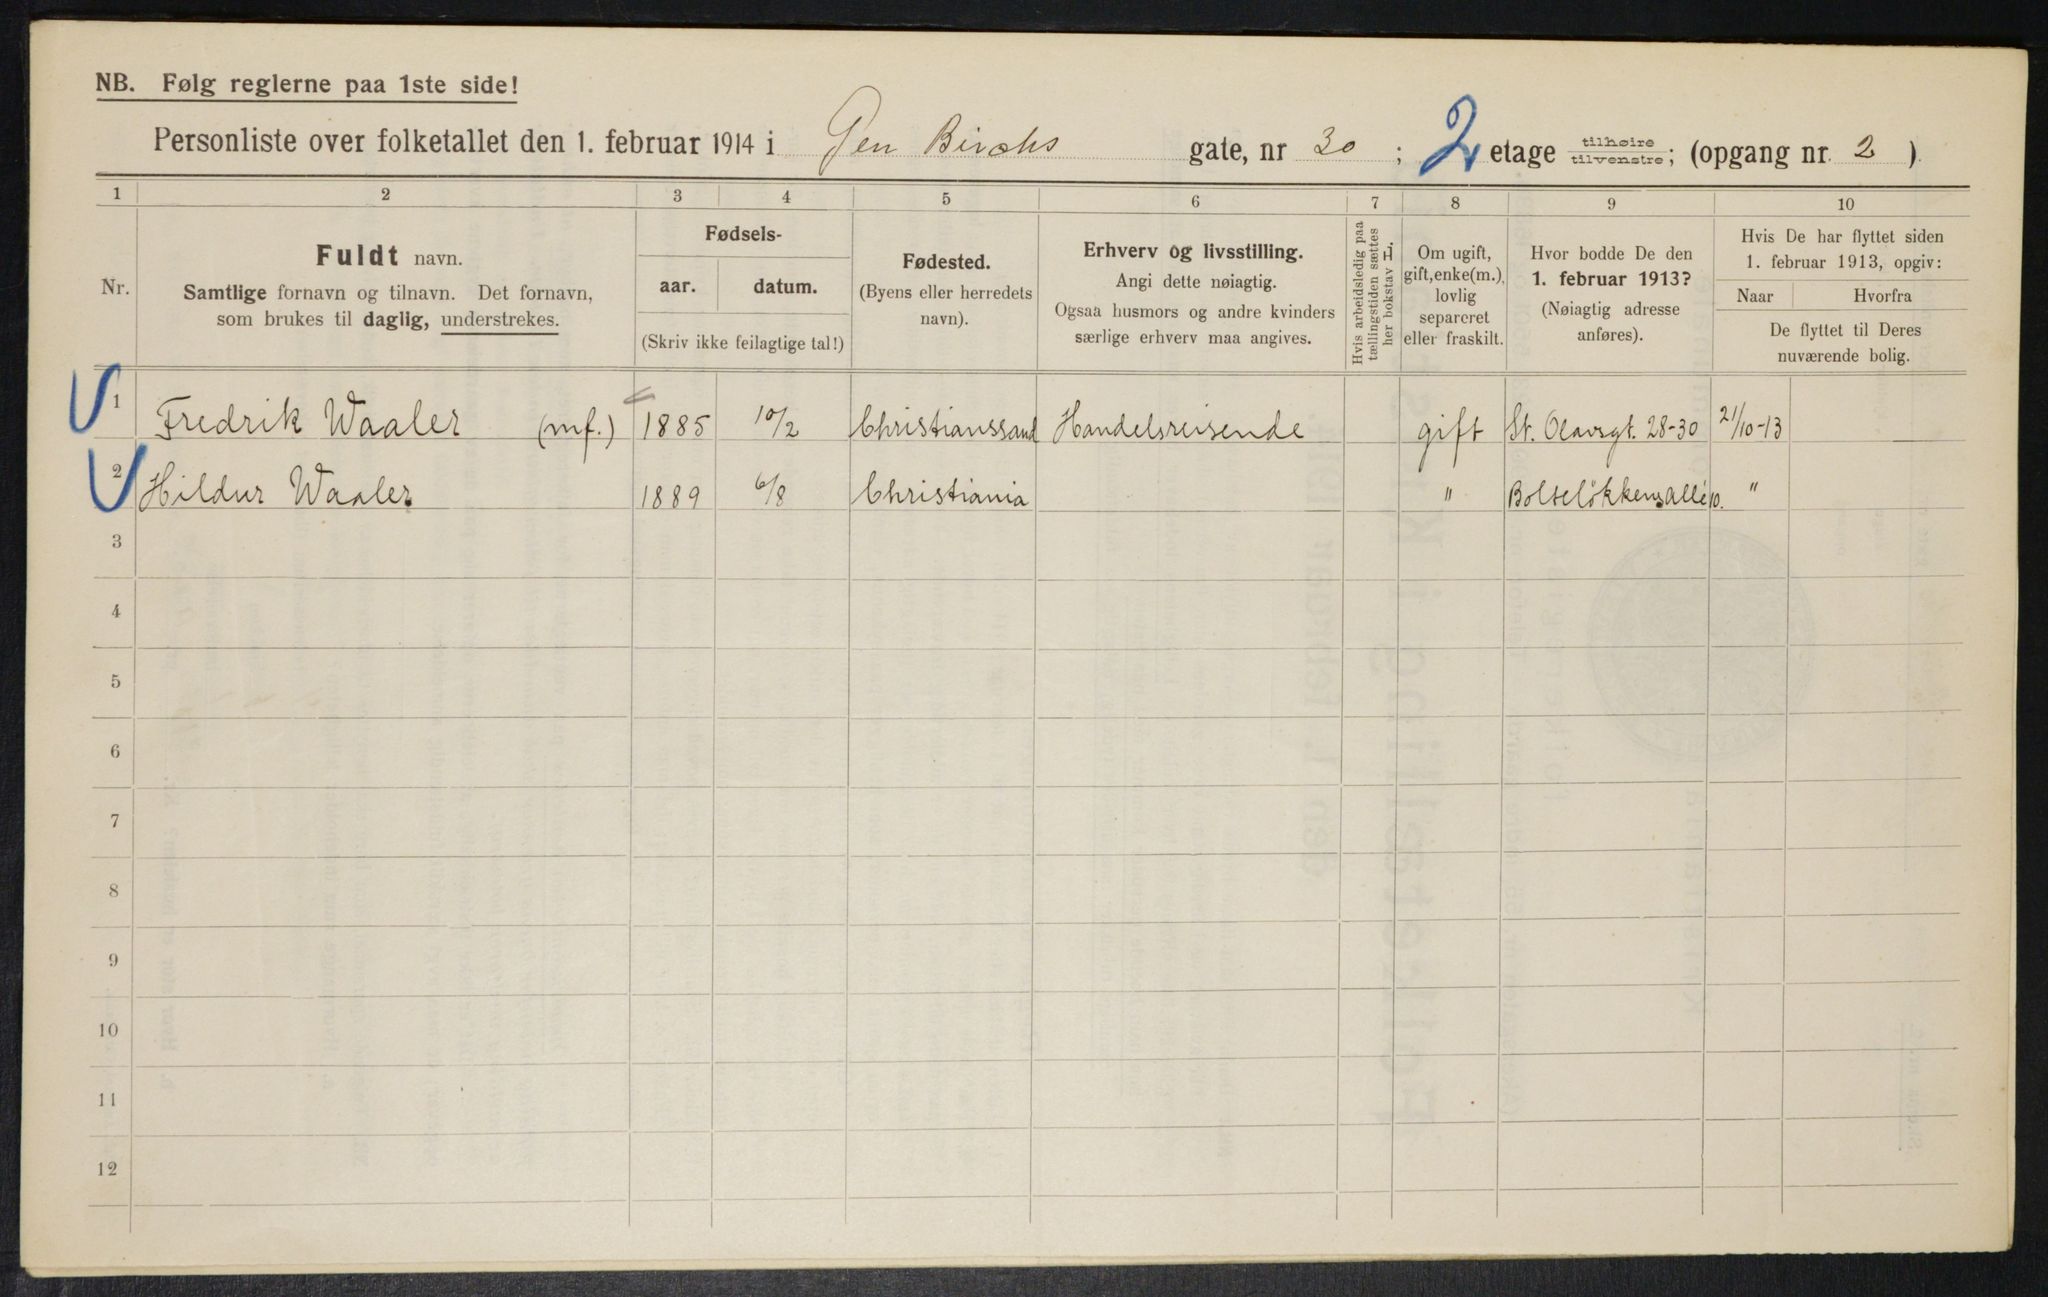 NB. Følg reglerne paa 1ste side!
Personliste over folketallet den 1. februar 1914 i Gen Birchs gate, nr 30; 2 etage tilhøire tilvenstre; (opgang nr. 2)
1 2 3 4 5 6 7 8 9 10
Nr.
Fuldt navn.
Samtlige fornavn og tilnavn. Det fornavn,
som brukes til daglig, understrekes.
Fødsels-
aar. datum.
(Skriv ikke feilagtige tal!)
Fødested.
(Byens eller herredets
navn).
Erhverv og livsstilling.
Angi dette nøiagtig.
Ogsaa husmors og andre kvinders
særlige erhverv maa angives.
Hvis arbeidsledig paa
tællingstiden sættes
her bokstav L.
Om ugift,
gift, enke(m.),
lovlig
separeret
eller fraskilt.
Hvor bodde De den
1. februar 1913?
(Nøiagtig adresse
anføres).
Hvis De har flyttet siden
1. februar 1913, opgiv:
Naar Hvorfra
De flyttet til Deres
nuværende bolig.
1 Fredrik Waaler (mf.) 1885 10/2 Christianssand Handelsreisende gift St. Olavsgt. 28-30 21/10-13
2 Hildur Waaler 1889 6/8 Christiania " Bolteløkkens allé 10. "
3
4
5
6
7
8
9
10
11
12